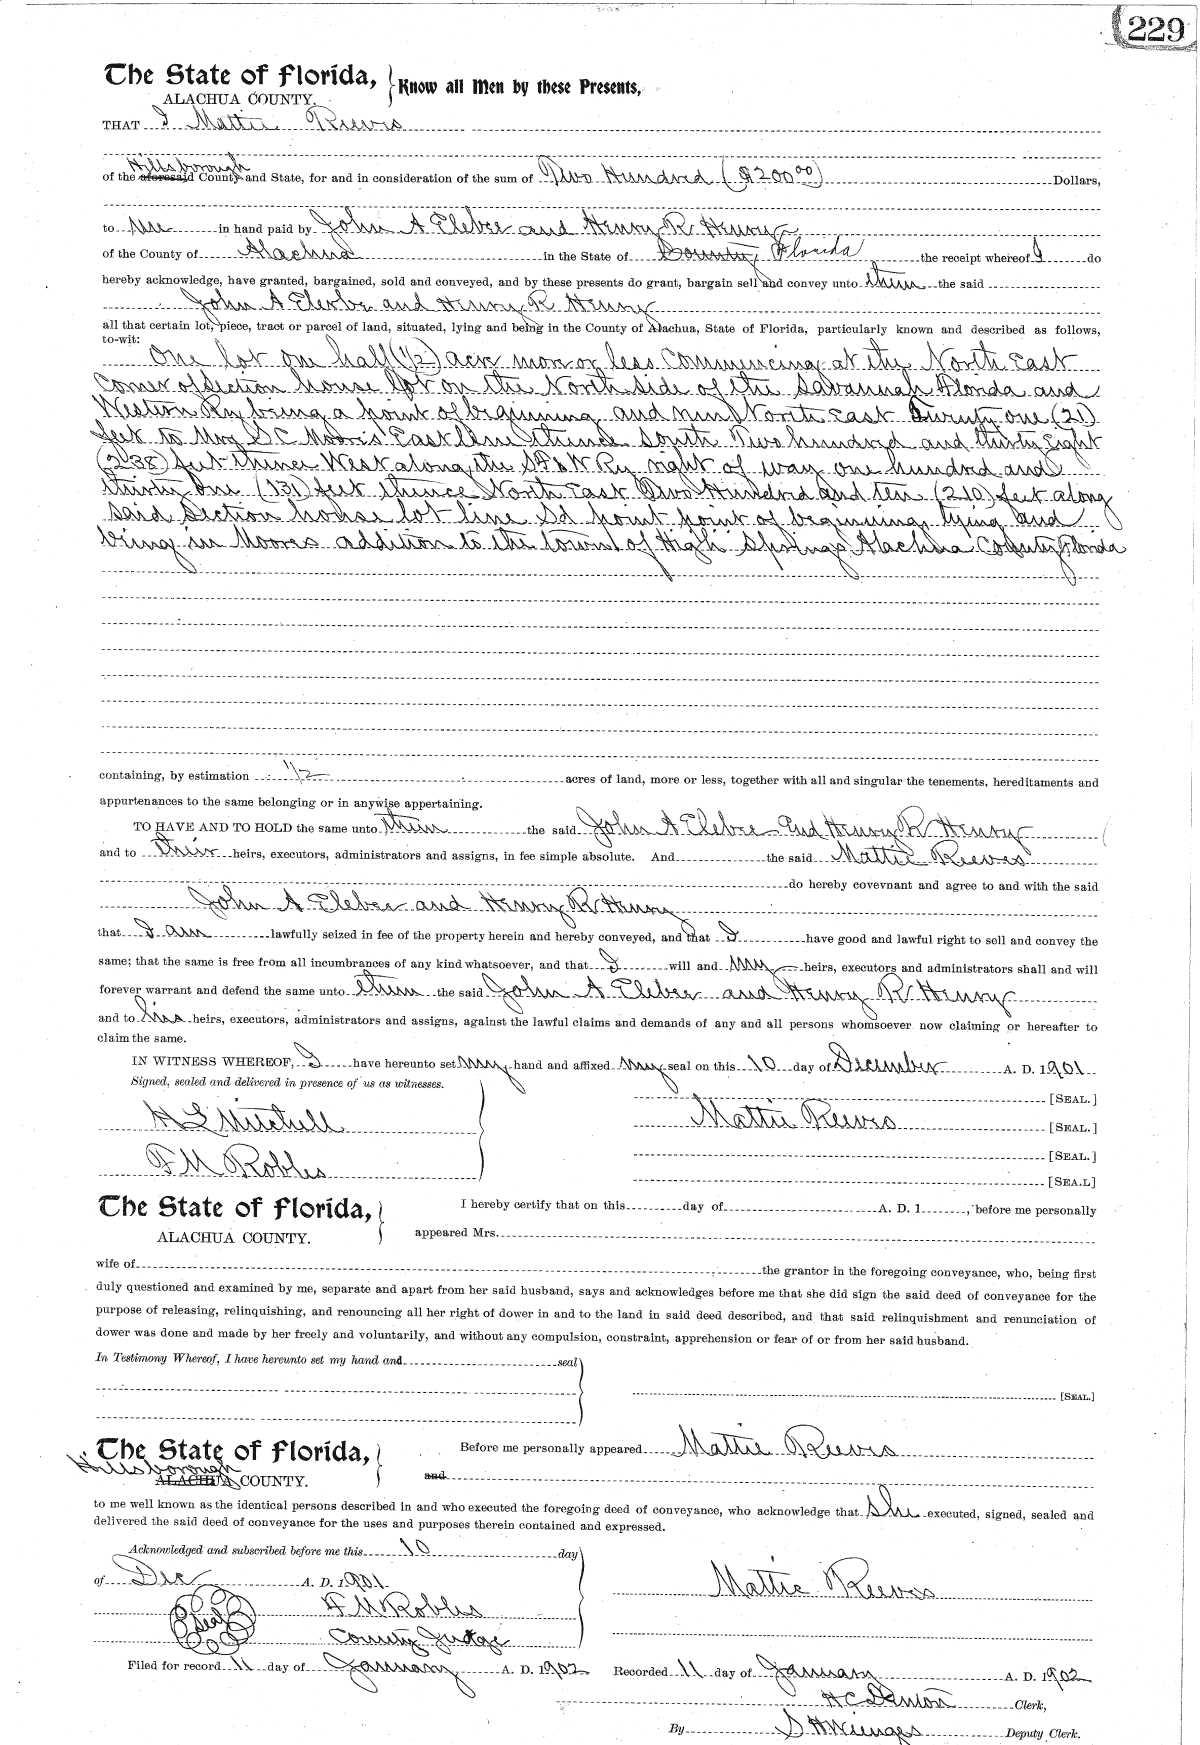 229
The State of Florida, Know all Men by these Presents,
ALACHUA COUNTY.
THAT I Mattie Reeves
Hillsborough
of the aforesaid County and State, for and in consideration of the sum of Two Hundred ($200 00) Dollars,
to me in hand paid by John A Elebee and Henry R. Henry
of the County of Alachua in the State of County, Florida the receipt whereof I do
hereby acknowledge, have granted, bargained, sold and conveyed, and by these presents do grant, bargain sell and convey unto them the said
John A and Henry R Henry
all that certain lot, piece, tract or parcel of land, situated, lying and being in the County of Alachua, State of Florida, particularly known and described as follows,
to-wit:
One lot on half (1/2) acre more or less Commencing at the North East
Corner of Section house lot on the North side of the Savannah Florida and
Western Ry being a point of beginning and run North East Twenty one (21)
feet to Mrs S C Moores East line thence South Two hundred and thirty Eight
(238) feet thence West along the S F & W Ry right of way one hundred and
thirty one (131) feet thence North East Two Hundred and ten (210) feet along
said Section house lot line Sd point point of beginning, lying and
being in Moores addition to the town of High Springs, Alachua County Florida
containing, by estimation 1/2 acres of land, more or less, together with all and singular the tenements, hereditaments and
appurtenances to the same belonging or in anywise appertaining.
TO HAVE AND TO HOLD the same unto them the said John A Elebee and Henry R Henry
and to their heirs, executors, administrators and assigns, in fee simple absolute. And the said Mattie Reeves
do hereby covevnant and agree to and with the said
John A Elebee and Henry R Henry
that I am lawfully seized in fee of the property herein and hereby conveyed, and that I have good and lawful right to sell and convey the
same; that the same is free from all incumbrances of any kind whatsoever, and that I will and my heirs, executors and administrators shall and will
forever warrant and defend the same unto them the said John A Elebee and Henry R Henry
and to his heirs, executors, administrators and assigns, against the lawful claims and demands of any and all persons whomsoever now claiming or hereafter to
claim the same.
IN WITNESS WHEREOF, I have hereunto set my hand and affixed my seal on this 10 day of December A. D. 1901
Signed, sealed and delivered in presence of us as witnesses.
[SEAL.]
H L Mitchell Mattie Reeves [SEAL.]
[SEAL.]
F M Robles [SEA.L]
The State of Florida, I hereby certify that on this day of A. D. 1 , before me personally
ALACHUA COUNTY. appeared Mrs.
wife of the grantor in the foregoing conveyance, who, being first
duly questioned and examined by me, separate and apart from her said husband, says and acknowledges before me that she did sign the said deed of conveyance for the
purpose of releasing, relinquishing, and renouncing all her right of dower in and to the land in said deed described, and that said relinquishment and renunciation of
dower was done and made by her freely and voluntarily, and without any compulsion, constraint, apprehension or fear of or from her said husband.
In Testimony Whereof, I have hereunto set my hand and seal
[SEAL.]
The State of Florida, Before me personally appeared Mattie Reeves
Hillsborough
ALACHUA COUNTY. and
to me well known as the identical persons described in and who executed the foregoing deed of conveyance, who acknowledge that she executed, signed, sealed and
delivered the said deed of conveyance for the uses and purposes therein contained and expressed.
Acknowledged and subscribed before me this 10 day
of Dec A. D. 1901 Mattie Reeves
Seal F M Robles
County Judge
Filed for record 11 day of January A. D. 1902 Recorded 11 day of January A. D. 1902
H C Denton Clerk,
By S H Wienges Deputy Clerk.